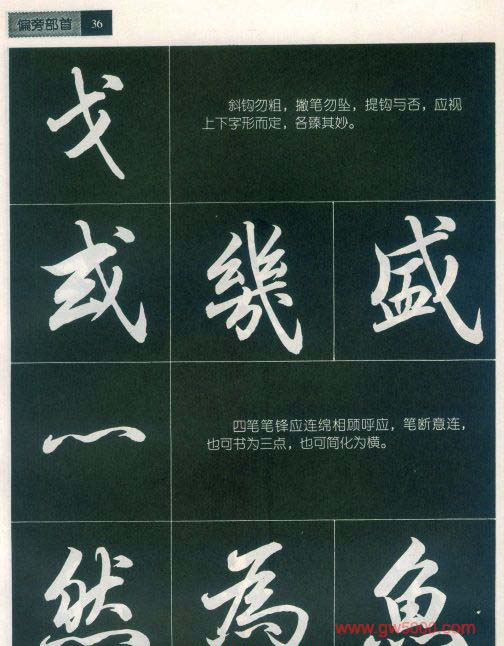 偏旁部首 36
戈
斜钩勿粗，撇笔勿坠，提钩与否，应视
上下字形而定，各臻其妙。
或 幾 盛
灬
四笔笔锋应连绵相顾呼应，笔断意连，
也可书为三点，也可简化为横。
然 為 魚
www.gw5000.com